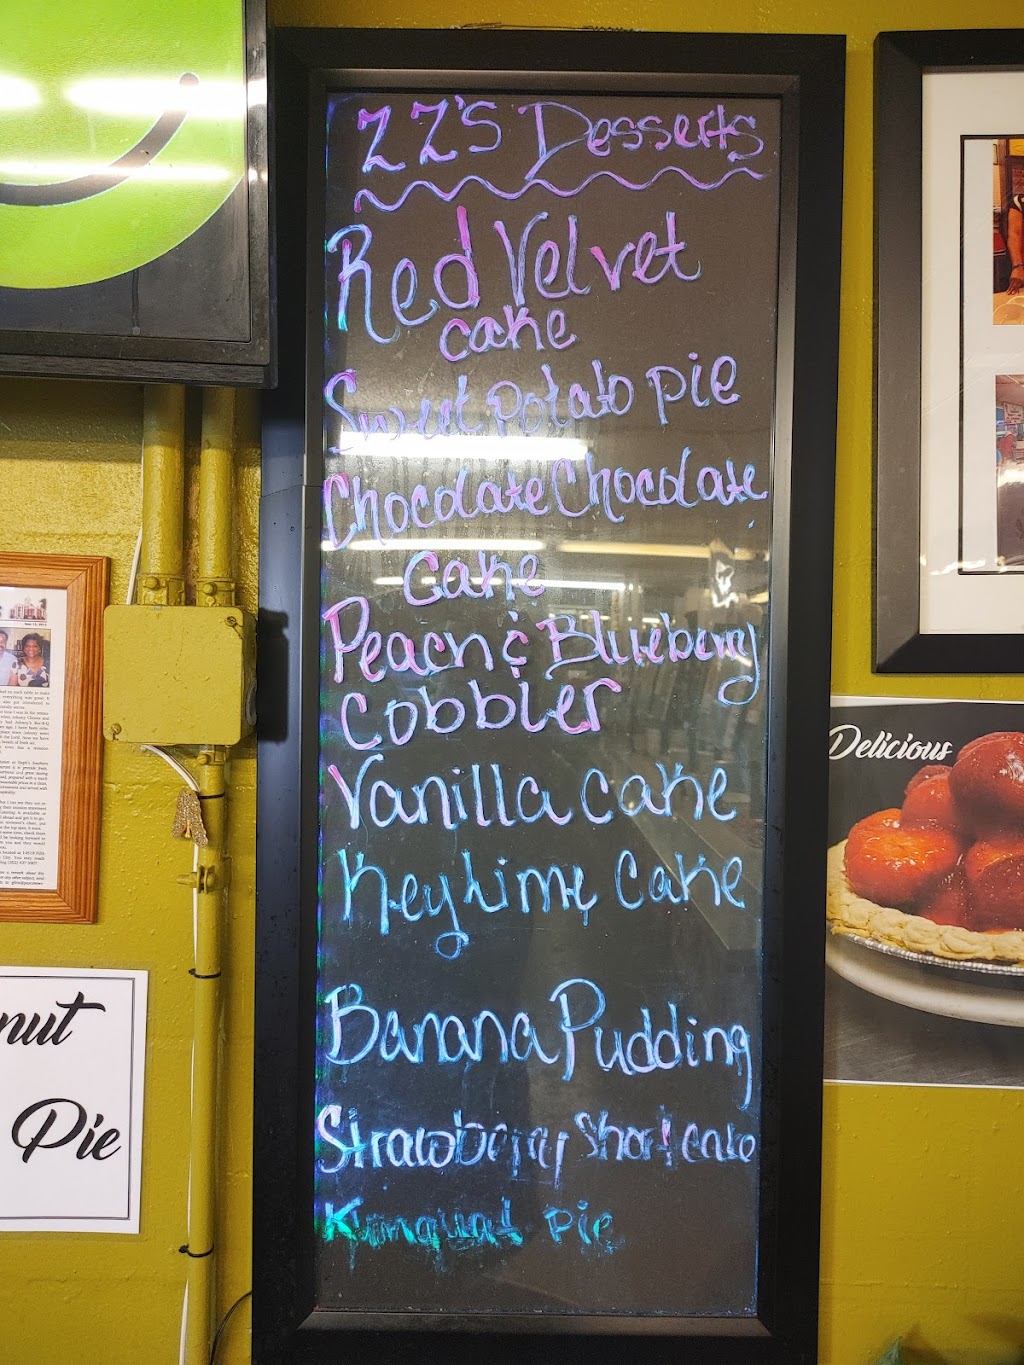 ZZ's Desserts
Red Velvet
cake
Sweet Potato pie
Chocolate Chocolate
Cake
Peach & Blueberry
Cobbler
Vanilla cake
Key Lime Cake
Banana Pudding
Strawberry Shortcake
Kumquat pie
Delicious
nut
Pie